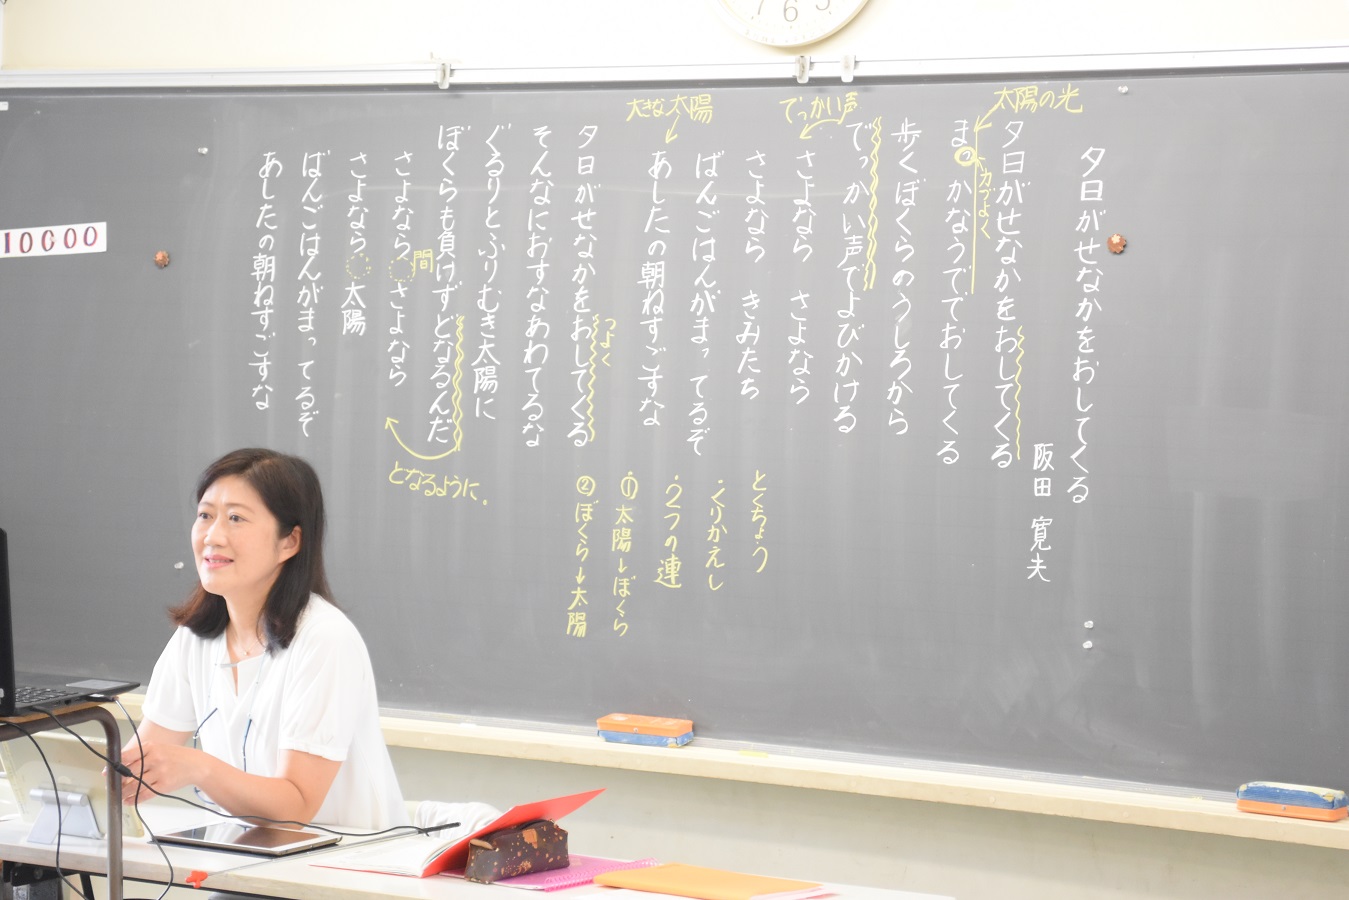 夕日がせなかをおしてくる
阪田 寛夫
夕日がせなかをおしてくる
まっかなうででおしてくる
歩くぼくらのうしろから
でっかい声でよびかける
さよなら さよなら
さよなら きみたち
ばんごはんがまってるぞ
あしたの朝ねすごすな
夕日がせなかをおしてくる
そんなにおすなあわてるな
ぐるりとふりむき太陽に
ぼくらも負けずどなるんだ
さよなら さよなら
さよなら 太陽
ばんごはんがまってるぞ
あしたの朝ねすごすな
太陽の光
力づよく
でっかい声
大きな太陽
つよく
間
となるように。
とくちょう
・くりかえし
・2つの連
① 太陽→ぼくら
② ぼくら→太陽
10000
7 6 5